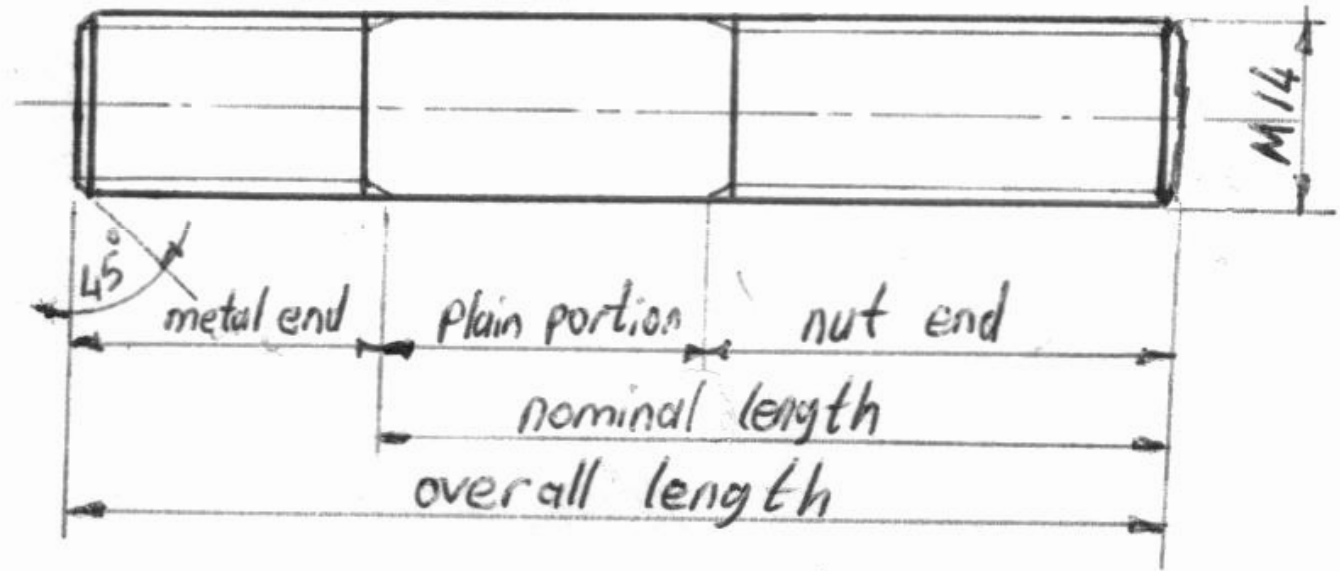 M14
45°
metal end
plain portion
nut end
nominal length
overall length